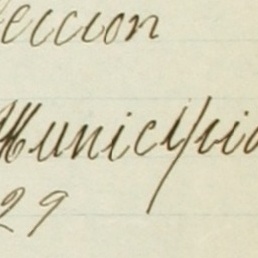 eccion
Municipio
29